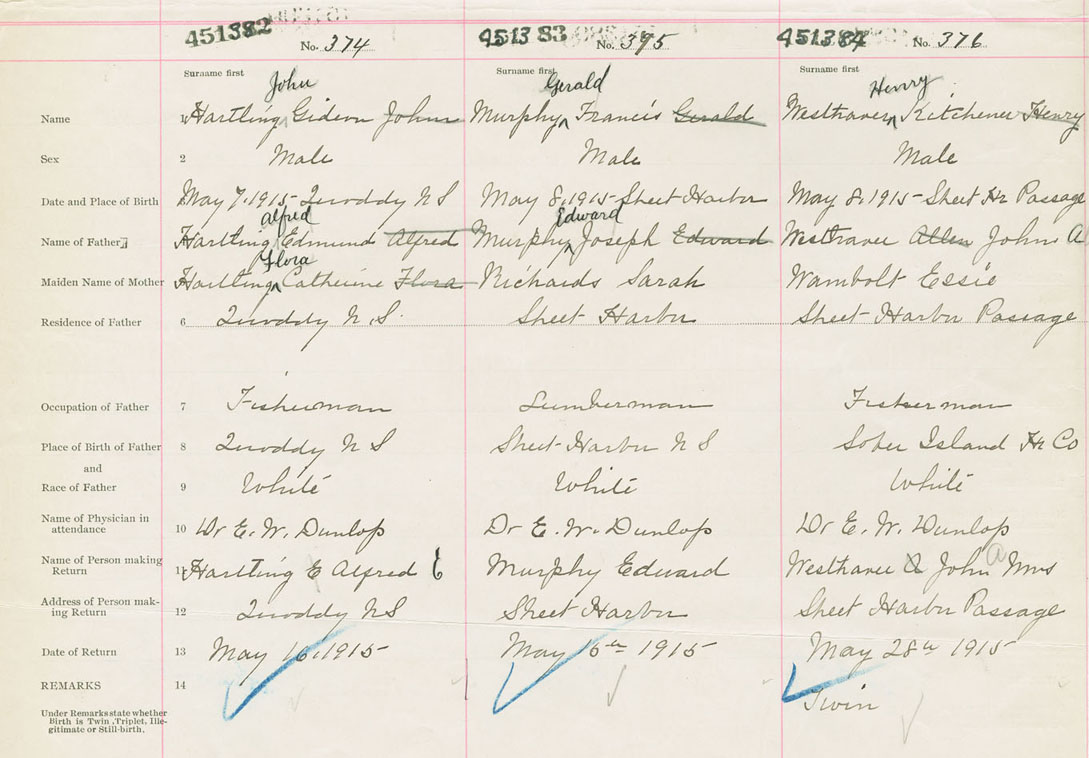 451382 451383 451384
No. 374 No. 375 No. 376
Surname first Surname first Surname first
John Gerald Henry
Name 1 Hartling ^ Gideon John Murphy ^ Francis Gerald Westhaver ^ Kitchener Henry
Sex 2 Male Male Male
Date and Place of Birth May 7, 1915 - Quoddy N S May 8, 1915 - Sheet Harbor May 8, 1915 - Sheet Hr Passage
Alfred Edward
Name of Father Hartling Edmund Alfred Murphy ^ Joseph Edward Westhaver Allen John A
Flora
Maiden Name of Mother Hartling ^ Catherine Flora Richards Sarah Wambolt Essie
Residence of Father 6 Quoddy N.S. Sheet Harbor Sheet Harbor Passage
Occupation of Father 7 Fisherman Lumberman Fisherman
Place of Birth of Father 8 Quoddy N S Sheet Harbor N S Sober Island Hx Co
and
Race of Father 9 White White White
Name of Physician in
attendance 10 Dr E. W. Dunlop Dr E. W. Dunlop Dr E. W. Dunlop
Name of Person making
Return 11 Hartling E Alfred Murphy Edward Westhaver John A Mrs
Address of Person mak-
ing Return 12 Quoddy N S Sheet Harbor Sheet Harbor Passage
Date of Return 13 May 16, 1915 May 15th 1915 May 28th 1915
REMARKS 14 Twin
Under Remarks state whether
Birth is Twin, Triplet, Ille-
gitimate or Still-birth.